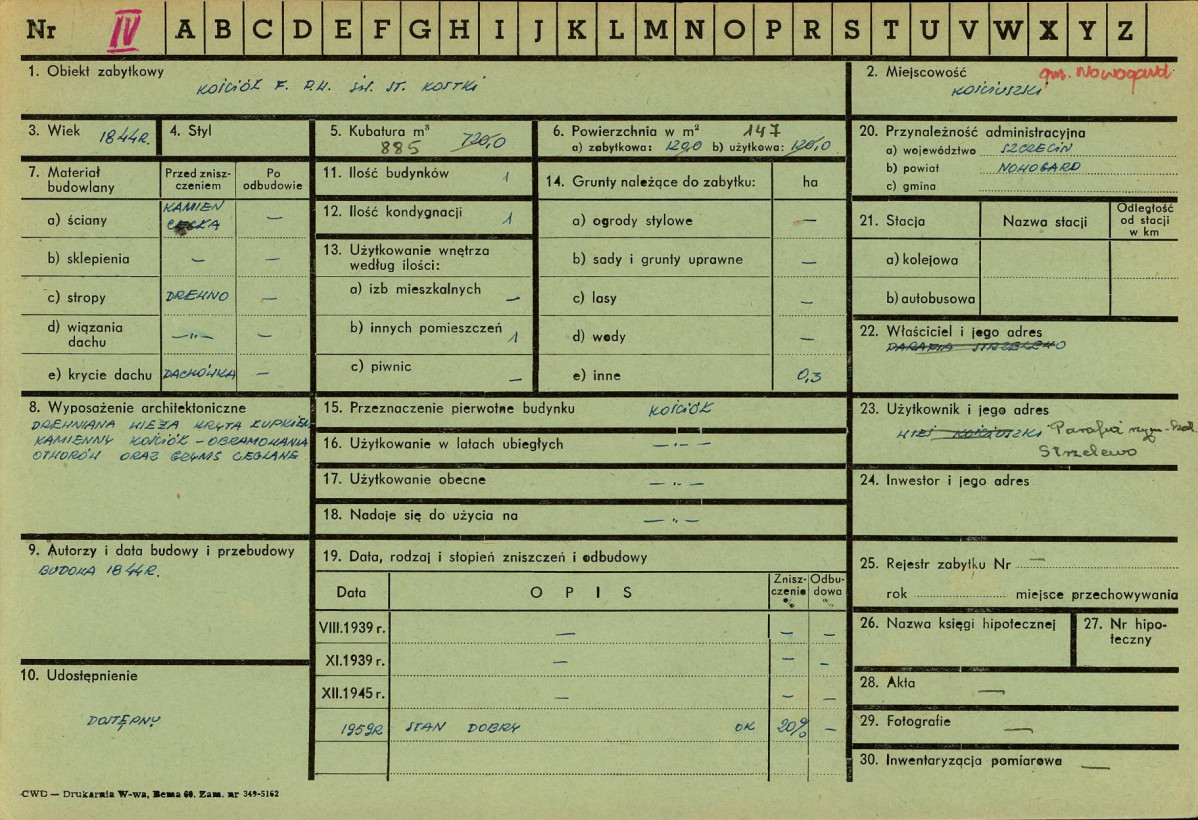 Nr IV A B C D E F G H I J K L M N O P R S T U V W X Y Z
1. Obiekt zabytkowy
KOŚCIÓŁ F. P.W. ŚW. ST. KOSTKI
2. Miejscowość gm. Nowogard
KOŚCIUSZKI
3. Wiek 1844R.
4. Styl
5. Kubatura m³ 720,0
885
6. Powierzchnia w m² 147
a) zabytkowa: 120,0 b) użytkowa: 120,0
7. Materiał budowlany
Przed znisz-
czeniem
Po
odbudowie
a) ściany KAMIEŃ CEGŁA —
b) sklepienia — —
c) stropy DREWNO —
d) wiązania dachu —„— —
e) krycie dachu DACHÓWKA —
11. Ilość budynków 1
12. Ilość kondygnacji 1
13. Użytkowanie wnętrza
według ilości:
a) izb mieszkalnych —
b) innych pomieszczeń 1
c) piwnic —
14. Grunty należące do zabytku: ha
a) ogrody stylowe —
b) sady i grunty uprawne —
c) lasy —
d) wody —
e) inne 0,3
20. Przynależność administracyjna
a) województwo SZCZECIN
b) powiat NOWOGARD
c) gmina
21. Stacja
Nazwa stacji
Odległość
od stacji
w km
a) kolejowa
b) autobusowa
22. Właściciel i jego adres
PARAFIA STRZELEWO
8. Wyposażenie architektoniczne
DREWNIANA WIEŻA KRYTA ŁUPKIEM
KAMIENNY KOŚCIÓŁ - OBRAMOWANIA
OTWORÓW ORAZ GZYMS CEGLANE
15. Przeznaczenie pierwotne budynku KOŚCIÓŁ
16. Użytkowanie w latach ubiegłych —„—
17. Użytkowanie obecne —„—
18. Nadaje się do użycia na —„—
23. Użytkownik i jego adres
WIEŚ KOŚCIUSZKI Parafia rzym-kat
Strzelewo
24. Inwestor i jego adres
9. Autorzy i data budowy i przebudowy
BUDOWA 1844R.
19. Data, rodzaj i stopień zniszczeń i odbudowy
Data OPIS
Znisz-
czenie
%
Odbu-
dowa
%
VIII.1939 r. — — —
XI.1939 r. — — —
XII.1945 r. — — —
1959R STAN DOBRY OK 20% —
25. Rejestr zabytku Nr —
rok miejsce przechowywania
26. Nazwa księgi hipotecznej
27. Nr hipo-
teczny
10. Udostępnienie
DOSTĘPNY
28. Akta —
29. Fotografie —
30. Inwentaryzacja pomiarowa —
CWD — Drukarnia W-wa, Bema 60. Zam. nr 349-5162